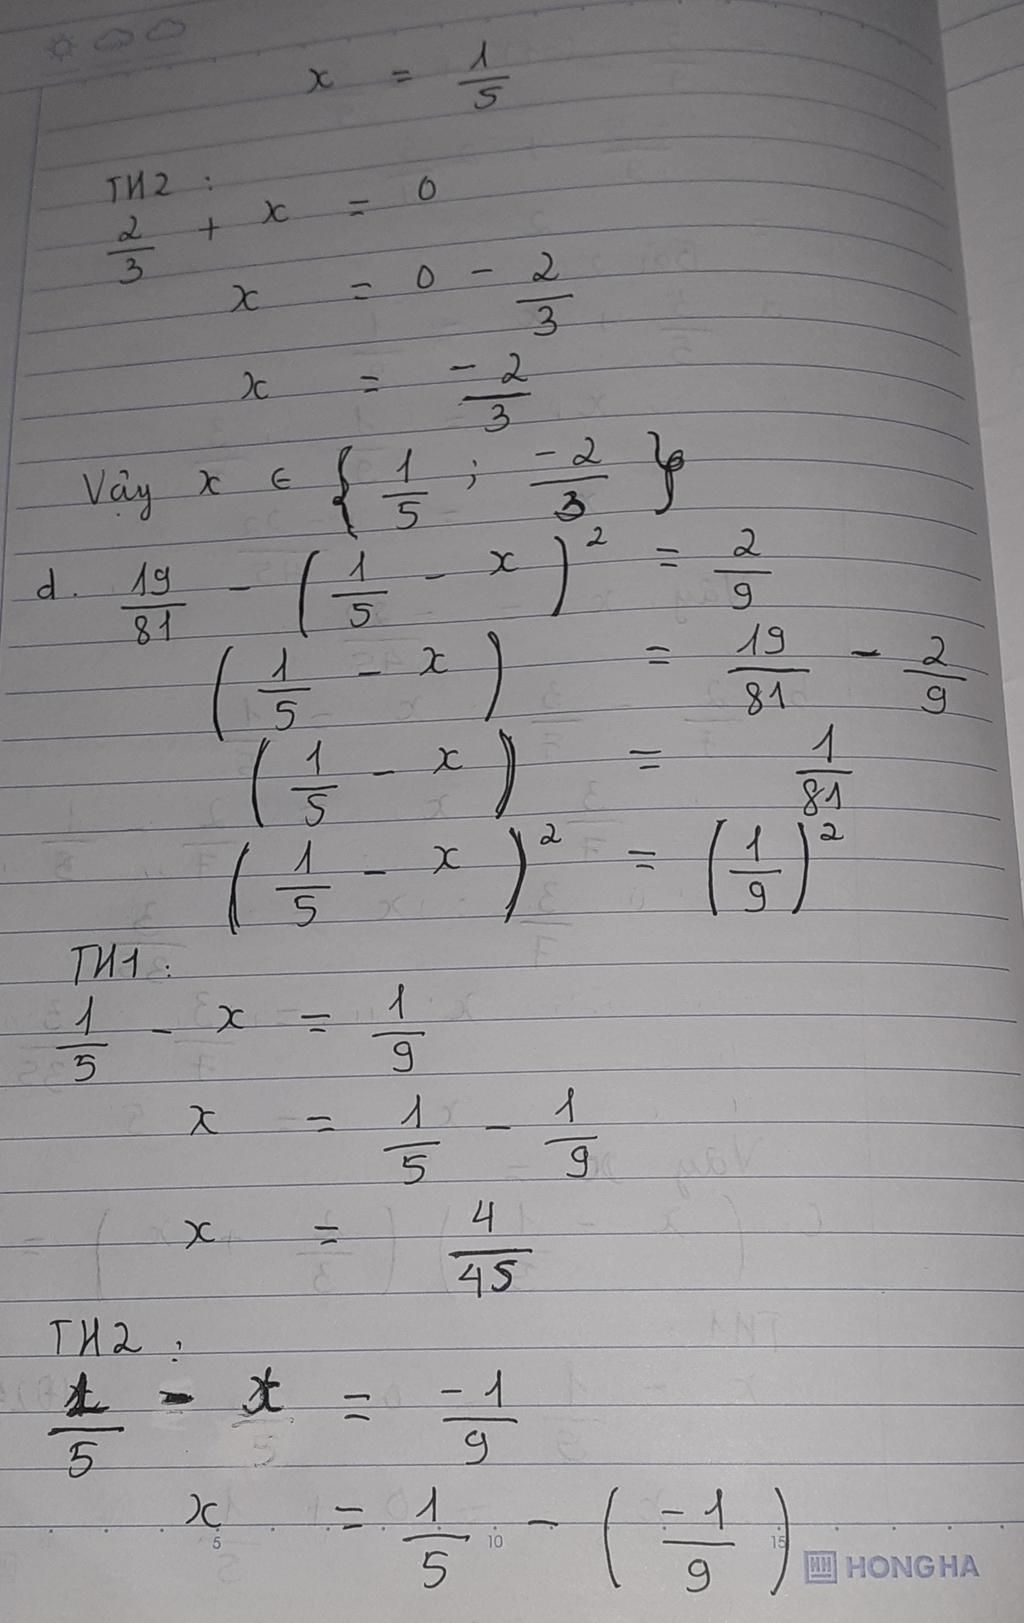 x = 1/5
TH2 :
2/3 + x = 0
x = 0 - 2/3
x = -2/3
Vậy x ∈ { 1/5 ; -2/3 }
d. 19/81 - ( 1/5 - x )² = 2/9
( 1/5 - x ) = 19/81 - 2/9
( 1/5 - x ) = 1/81
( 1/5 - x )² = ( 1/9 )²
TH1 :
1/5 - x = 1/9
x = 1/5 - 1/9
x = 4/45
TH2 :
1/5 - x = -1/9
x = 1/5 - ( -1/9 )
5 10 15
HH HONG HA